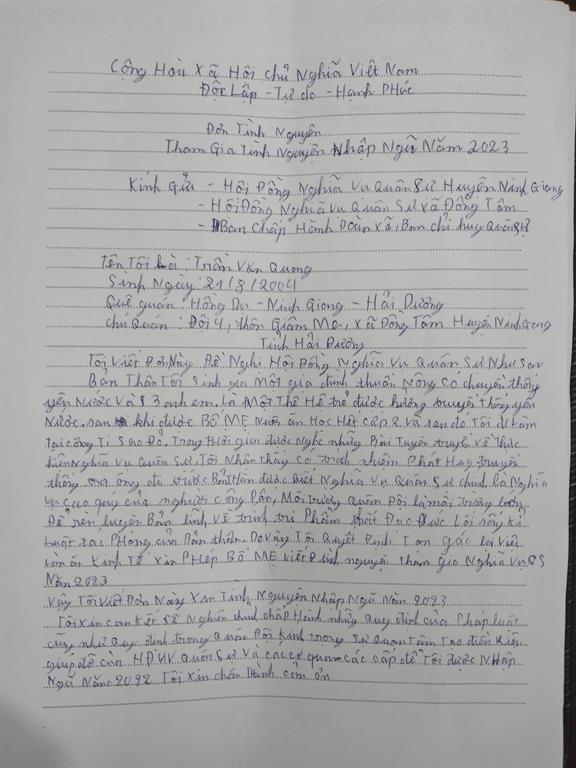 Cộng Hoà Xã Hội chủ Nghĩa Việt Nam
Độc Lập - Tự do - Hạnh Phúc
Đơn Tình Nguyện
Tham Gia Tình Nguyện Nhập Ngũ Năm 2023
Kính Gửi - Hội Đồng Nghĩa Vụ Quân Sự Huyện Ninh Giang
- Hội Đồng Nghĩa Vụ Quân Sự xã Đồng Tâm
- Ban Chấp Hành Đoàn xã, Ban chỉ huy Quân Sự
Tên Tôi Là : Trần Văn Quang
Sinh Ngày : 21/8/2004
Quê quán : Hồng Dụ - Ninh Giang - Hải Dương
chú Quán : Đội 4, thôn Giâm Me, xã Đồng Tâm Huyện Ninh Giang
Tỉnh Hải Dương
Tôi Viết Đơn Này Đề Nghị Hội Đồng Nghĩa Vụ Quân Sự Như Sau
Bản Thân Tôi Sinh ra Một gia đình thuần Nông Có chuyền thống
yên Nước Và 3 anh em. là Một Thế Hệ trẻ được hưởng truyền thống yên
Nước. sau khi được Bố Mẹ Nuôi ăn Học Hết cấp 2 và sau đó Tôi đi làm
tại công Ti Sao Đỏ. Trong thời gian được Nghe những Bài Tuyên truyền về Thực
hiện Nghĩa Vụ Quân Sự. Tôi Nhận thấy có trách nhiệm Phát Huy truyền
thống mà ông đi trước Bản thân được biết Nghĩa Vụ Quân Sự chính là Nghĩa
Vụ cao quý của người công Dân, Môi trường Quân Đội là môi trường
Để rèn luyện Bản lĩnh Về trình trí Phẩm chất Đạo Đức Lối sống kỉ
luật tác Phong của Bản thân. Do vậy Tôi Quyết Định Tạm gác lại Việc
làm ăn Kinh Tế xin Phép Bố Mẹ viết tình nguyện tham gia Nghĩa Vụ QS
Năm 2023
Vậy Tôi Viết Đơn Này Xin Tình Nguyện Nhập Ngũ Năm 2023
Tôi xin cam kết sẽ Nghiêm chỉnh chấp Hành những Quy định của Pháp luật
cũng như Quy định trong Quân Đội Kính trọng Sự Quan Tâm Tạo điều Kiện
giúp đỡ của HĐNV Quân Sự Và các cơ quan các cấp để Tôi được Nhập
Ngũ Năm 2022 Tôi Xin chân thành cảm ơn